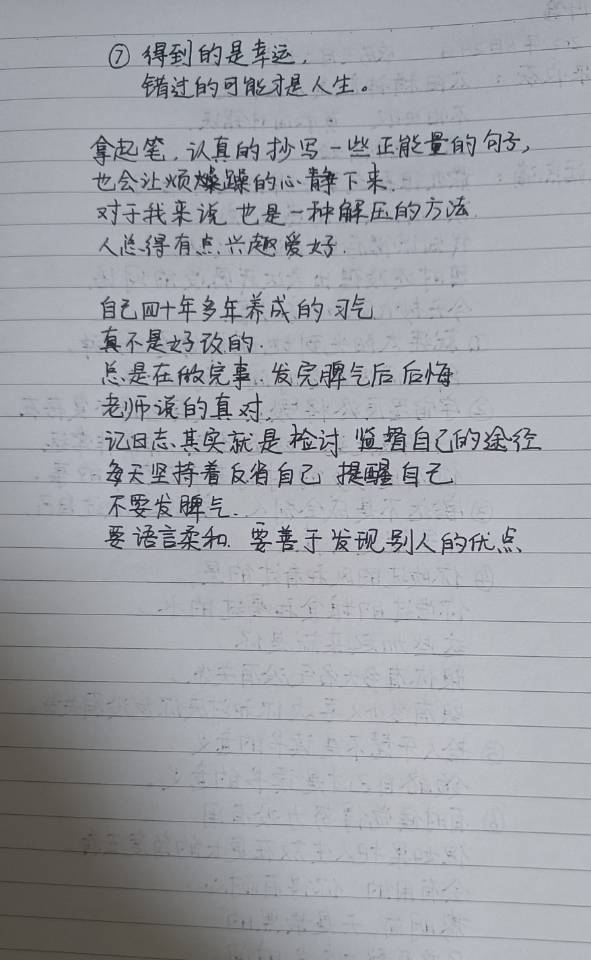 ⑦ 得到的是幸运,
错过的可能才是人生。
拿起笔,认真的抄写一些正能量的句子,
也会让烦燥躁的心静下来.
对于我来说 也是一种解压的方法.
人总得有点兴趣爱好.
自己四十年多年养成的习气
真不是好改的.
总是在做完事.发完脾气后 后悔
老师说的真对.
记日志.其实就是检讨 监督自己的途径
每天坚持着反省自己 提醒自己
不要发脾气.
要语言柔和. 要善于发现别人的优点